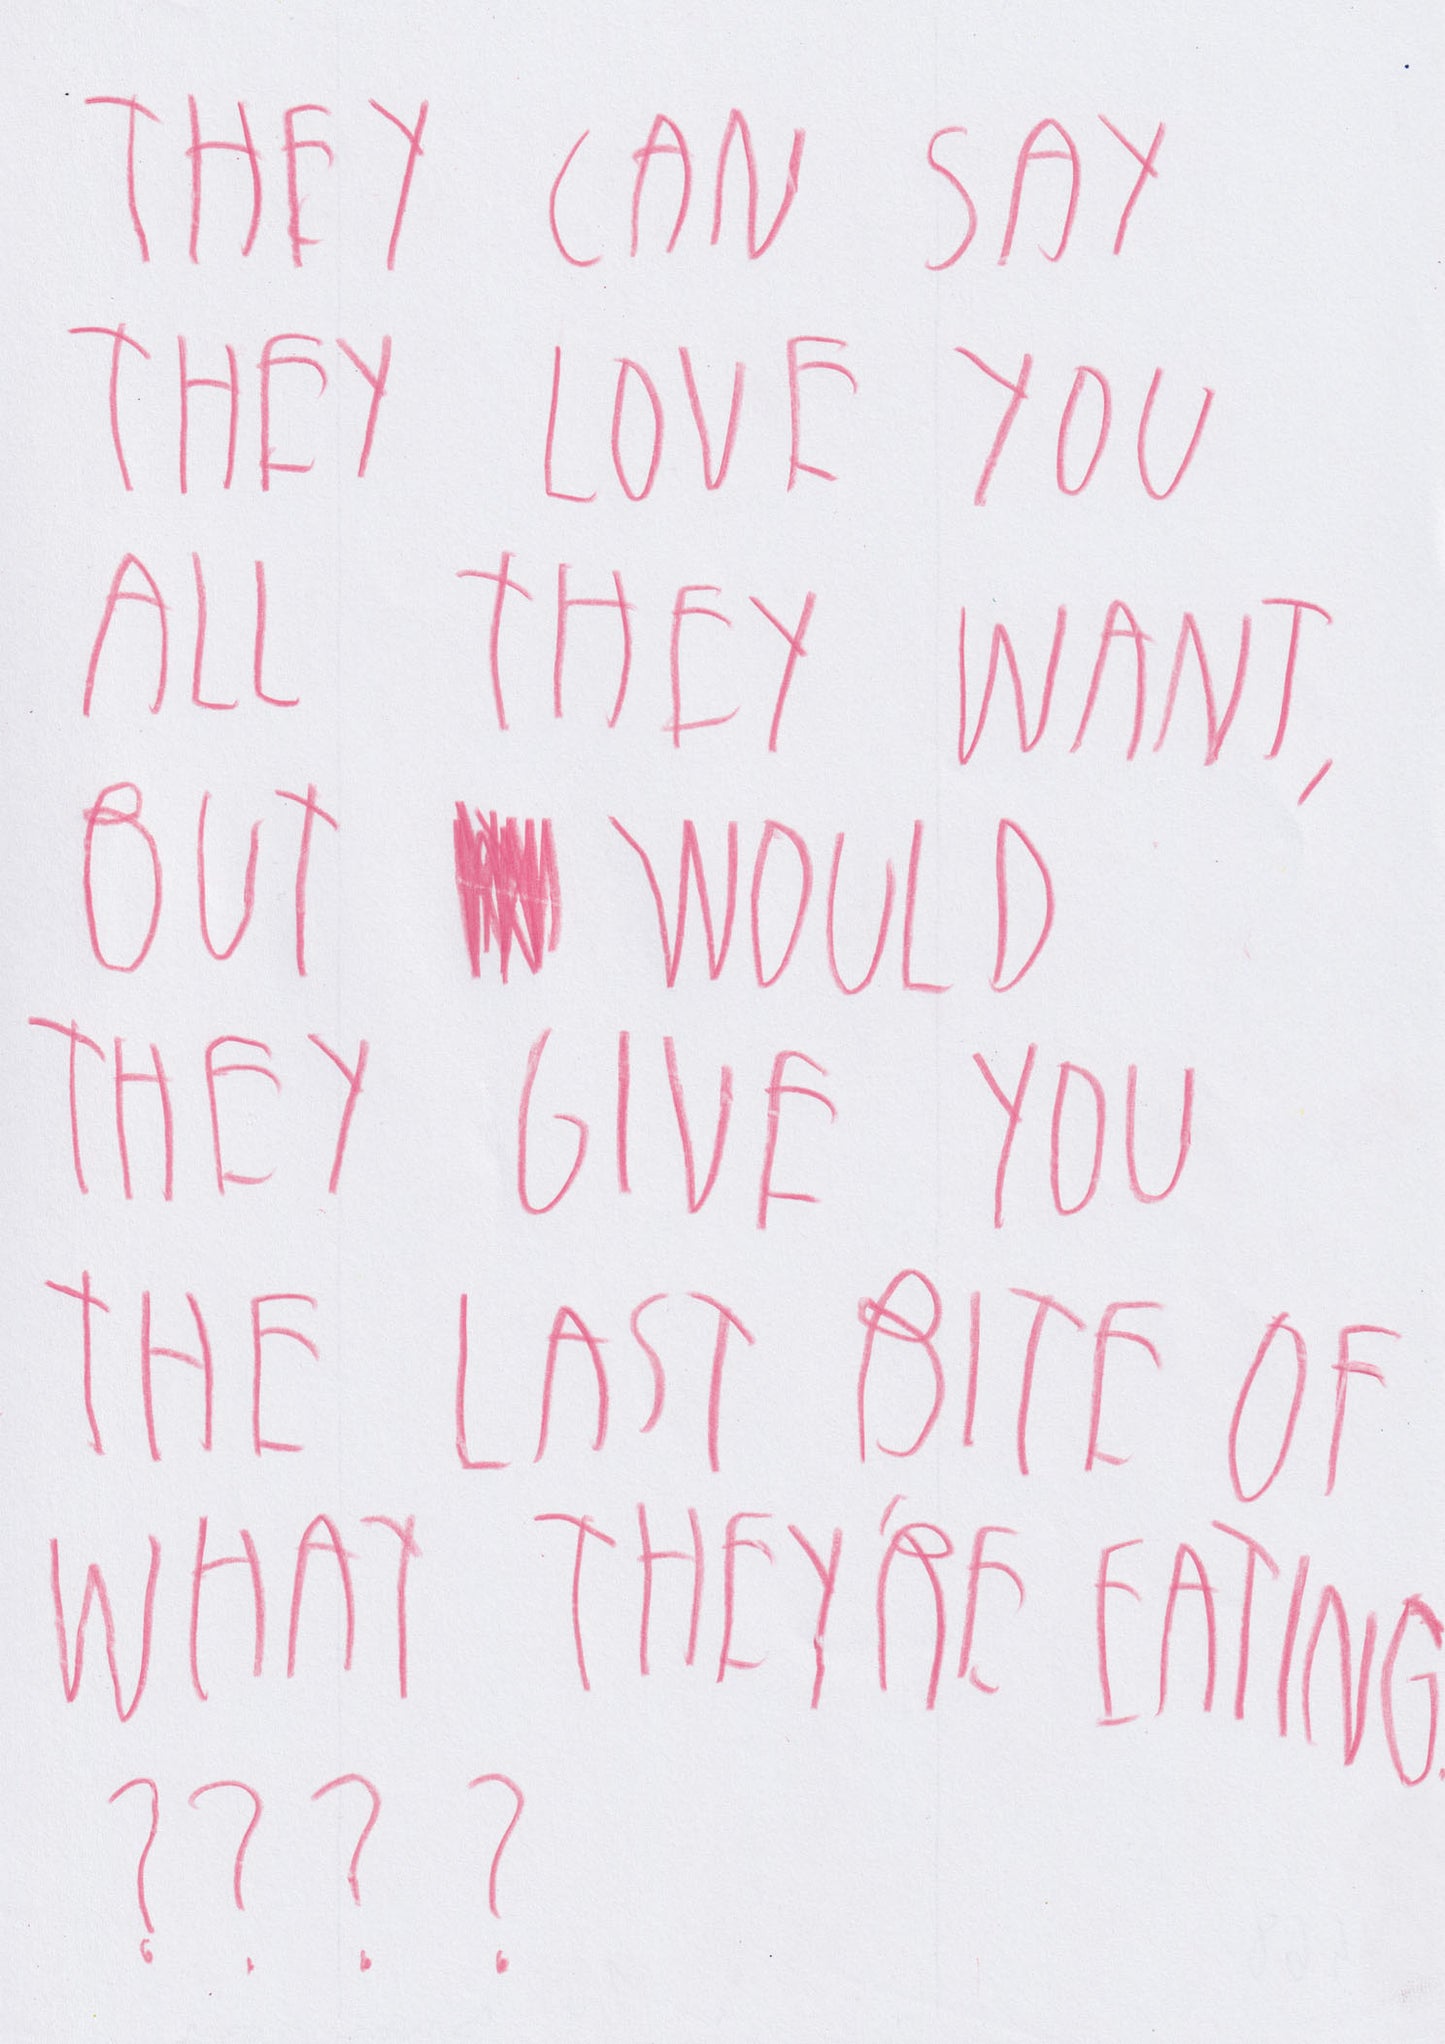 THEY CAN SAY
THEY LOVE YOU
ALL THEY WANT,
BUT WOULD
THEY GIVE YOU
THE LAST BITE OF
WHAT THEY'RE EATING.
????